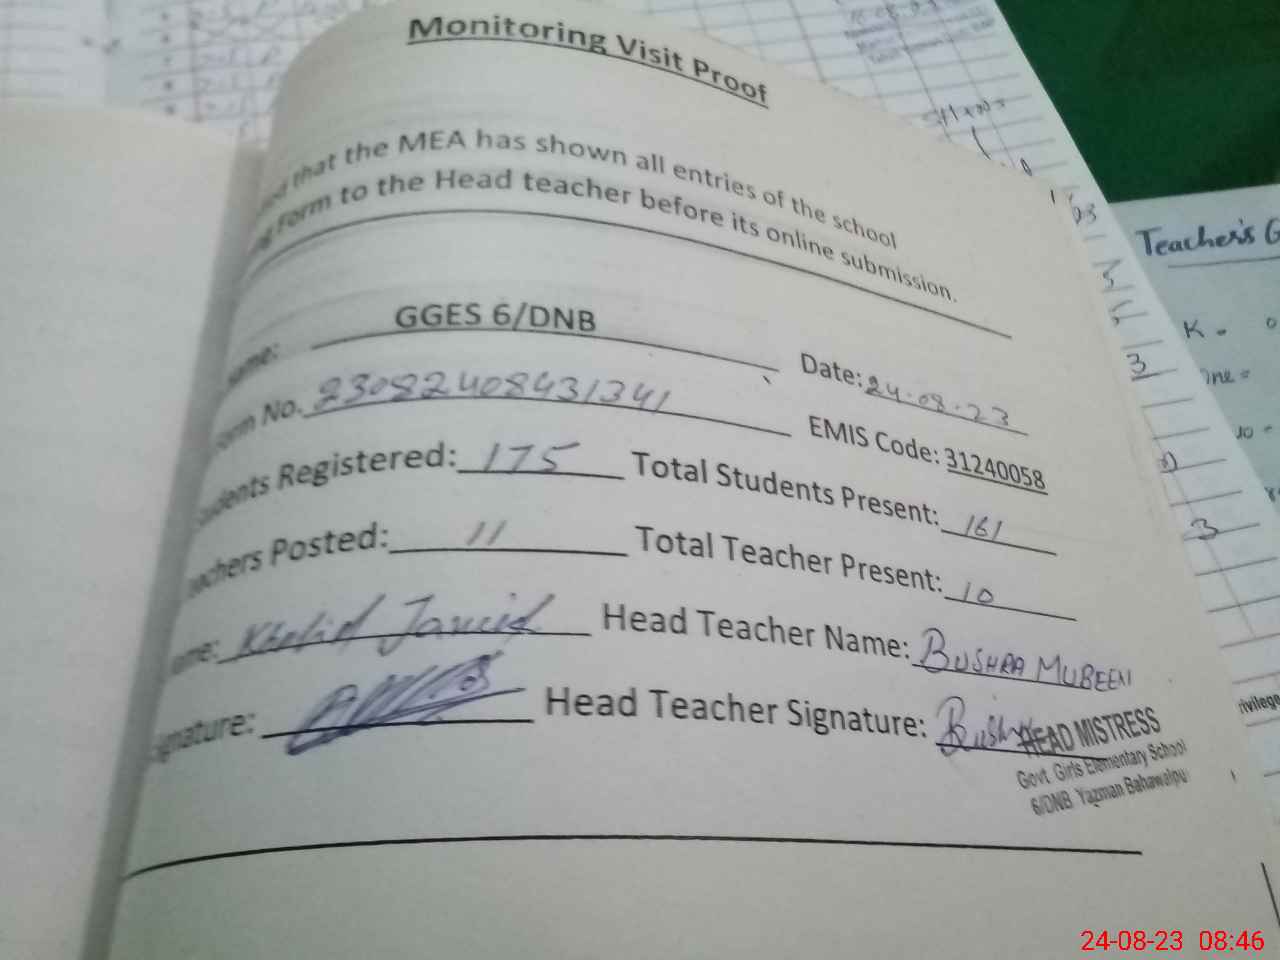 Monitoring Visit Proof
that the MEA has shown all entries of the school
Form to the Head teacher before its online submission.
GGES 6/DNB Date: 24.08.23
Form No. 230822408431341 EMIS Code: 31240058
Students Registered: 175 Total Students Present: 161
Teachers Posted: 11 Total Teacher Present: 10
Name: Khalid Javid Head Teacher Name: BUSHRA MUBEEN
Signature: Head Teacher Signature: Bushra
HEAD MISTRESS
Govt. Girls Elementary School
6/DNB Yazman Bahawalpu
Teacher's G
K -
One =
3
3
rivilege
24-08-23 08:46